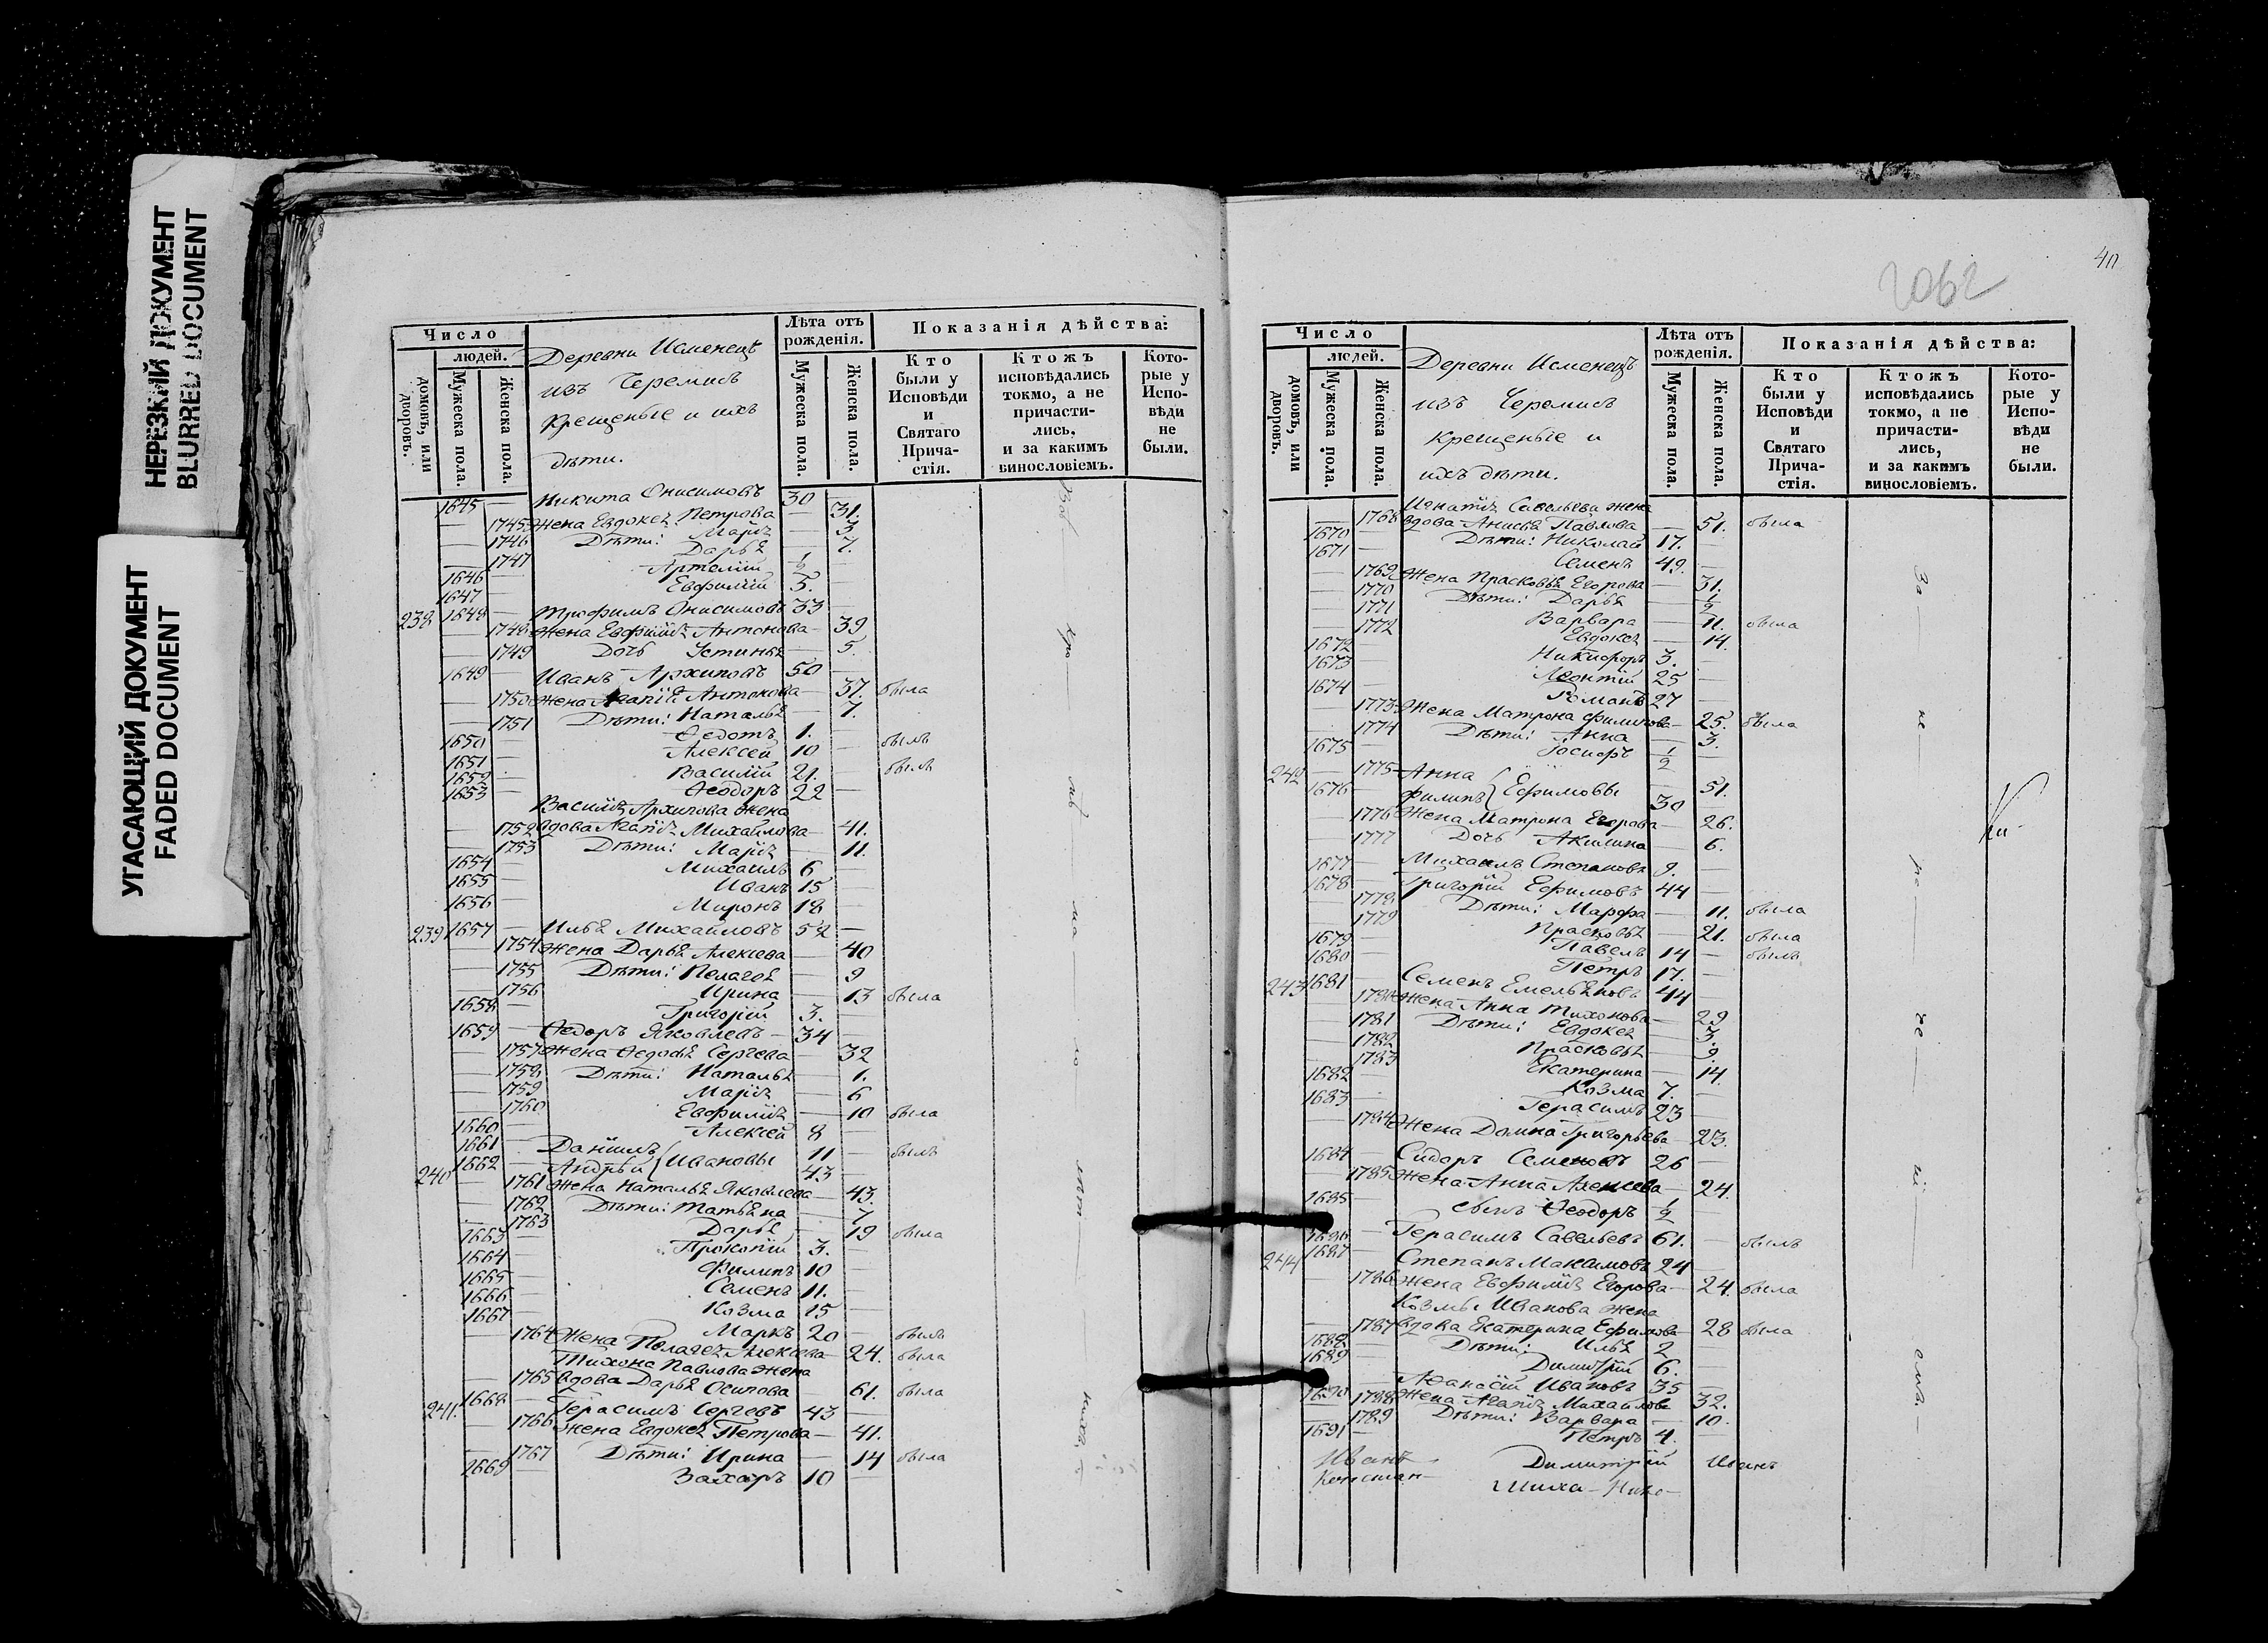 НЕРЕЗКИЙ ДОКУМЕНТ
BLURRED DOCUMENT
УГАСАЮЩИЙ ДОКУМЕНТ
FADED DOCUMENT
Число
людей.
домовъ, или дворовъ.
Мужеска пола.
Женска пола.
Деревни Исменецъ
изъ Черемисъ
крещеные и ихъ
дѣти.
Лѣта отъ рожденія.
Мужеска пола.
Женска пола.
Показанія дѣйства:
Кто были у Исповѣди и Святаго Прича-стія.
Ктожъ исповѣдались токмо, а не причасти-лись, и за какимъ винословіемъ.
Кото-рые у Испо-вѣди не были.
1645 — Никита Онисимовъ 30 —
— 1745 Жена Евдокея Петрова — 31.
— 1746 Дѣти: Марія — 3
— 1747 Дарья — 7.
1646 — Артемій ½ —
1647 — Евфимій 5. —
238 1648 — Трофимъ Онисимовъ 33
— 1748 Жена Евфимія Антонова — 39
— 1749 Дочь Устинья — 5.
1649 — Иванъ Архиповъ 50 —
— 1750 Жена Агапія Антонова — 37. была
— 1751 Дѣти: Наталья — 7.
1650 — Ѳедотъ 1. —
1651 — Алексей 10 — былъ
1652 — Василій 21. — былъ
1653 — Ѳеодоръ 22 —
Василія Архипова жена
— 1752 вдова Агапія Михайлова — 41.
— 1753 Дѣти: Марія — 11.
1654 — Михаилъ 6 —
1655 — Иванъ 15 —
1656 — Миронъ 18 —
239 1657 — Илья Михайловъ 52 —
— 1754 Жена Дарья Алексева — 40
— 1755 Дѣти: Пелагея — 9
— 1756 Ирина — 13 была
1658 — Григорій 3. —
1659 — Ѳедоръ Яковлевъ 34 —
— 1757 Жена Ѳедосья Сергева — 32
— 1758 Дѣти: Наталья — 1.
— 1759 Марія — 6
— 1760 Евфимія — 10 была
1660 — Алексей 8 —
1661 — Даніилъ 11 — былъ
240 1662 — Андрей { Ивановы 43 —
— 1761 Жена Наталья Яковлева — 43.
— 1762 Дѣти: Татьяна — 7
— 1763 Дарья — 19 была
1663 — Прокопій 3. —
1664 — Филипъ 10 —
1665 — Семенъ 11. —
1666 — Козма 15 —
1667 — Маркъ 20 — былъ
1764 Жена Пелагея Алексева — 24. была
Тихона Павлова жена
— 1765 вдова Дарья Осипова — 61. была
241. 1668 — Герасимъ Сергевъ 43 —
— 1766 Жена Евдокея Петрова — 41.
— 1767 Дѣти: Ирина — 14 была
1669 — Захаръ 10
40
2062
Число
людей.
домовъ, или дворовъ.
Мужеска пола.
Женска пола.
Деревни Исменецъ
изъ Черемисъ
крещеные и
ихъ дѣти.
Лѣта отъ рожденія.
Мужеска пола.
Женска пола.
Показанія дѣйства:
Кто были у Исповѣди и Святаго Прича-стія.
Ктожъ исповѣдались токмо, а не причасти-лись, и за какимъ винословіемъ.
Кото-рые у Испо-вѣди не были.
Игнатія Савельева жена
— 1768 вдова Анисья Павлова — 51. была
1670 — Дѣти: Николай 17. —
1671 — Семенъ 49. —
— 1769 Жена Прасковья Егорова — 31.
— 1770 Дѣти: Дарья — ½
— 1771 Варвара — 11. была
— 1772 Евдокея — 14.
1672 — Никифоръ 3. —
1673 — Леонтій 25 —
1674 — Романъ 27 —
— 1773 Жена Матрона Филипова — 25. была
— 1774 Дѣти: Анна — 3.
1675 — Іосифъ ½ —
242 — 1775 Анна — 51.
1676 — Филипъ { Ефимовы 30
— 1776 Жена Матрона Егорова — 26.
— 1777 Дочь Акилина — 6.
1677 — Михаилъ Степановъ 9. —
1678 — Григорій Ефимовъ 44 —
— 1778 Дѣти: Марфа — 11. была
— 1779 Прасковья — 21. была
1679 — Павелъ 14 — былъ
1680 — Петръ 17. —
243 1681 — Семенъ Емельяновъ 44 —
— 1780 Жена Анна Тихонова — 29
— 1781 Дѣти: Евдокея — 3.
— 1782 Прасковья — 9.
— 1783 Екатерина — 14.
1682 — Козма 7. —
1683 — Герасимъ 23 —
— 1784 Жена Домна Григорьева — 23.
1684 — Сидоръ Семеновъ 26 —
— 1785 Жена Анна Алексева — 24.
1685 — сынъ Ѳеодоръ ½ —
1686 — Герасимъ Савельевъ 61. — былъ
244 1687 — Степанъ Макимовъ 24 —
— 1786 Жена Евфимія Егорова — 24. была
Козмы Иванова жена
— 1787 вдова Екатерина Ефимова — 28 была
1688 — Дѣти: Илья 2 —
1689 — Димитрій 6. —
1690 — Аѳанасій Ивановъ 35 —
— 1788 Жена Агапія Михайлова — 32.
— 1789 Дѣти: Варвара — 10.
1691 — Петръ 4.
Иванъ Димитрій Иванъ
Констан— Миха— Нико—